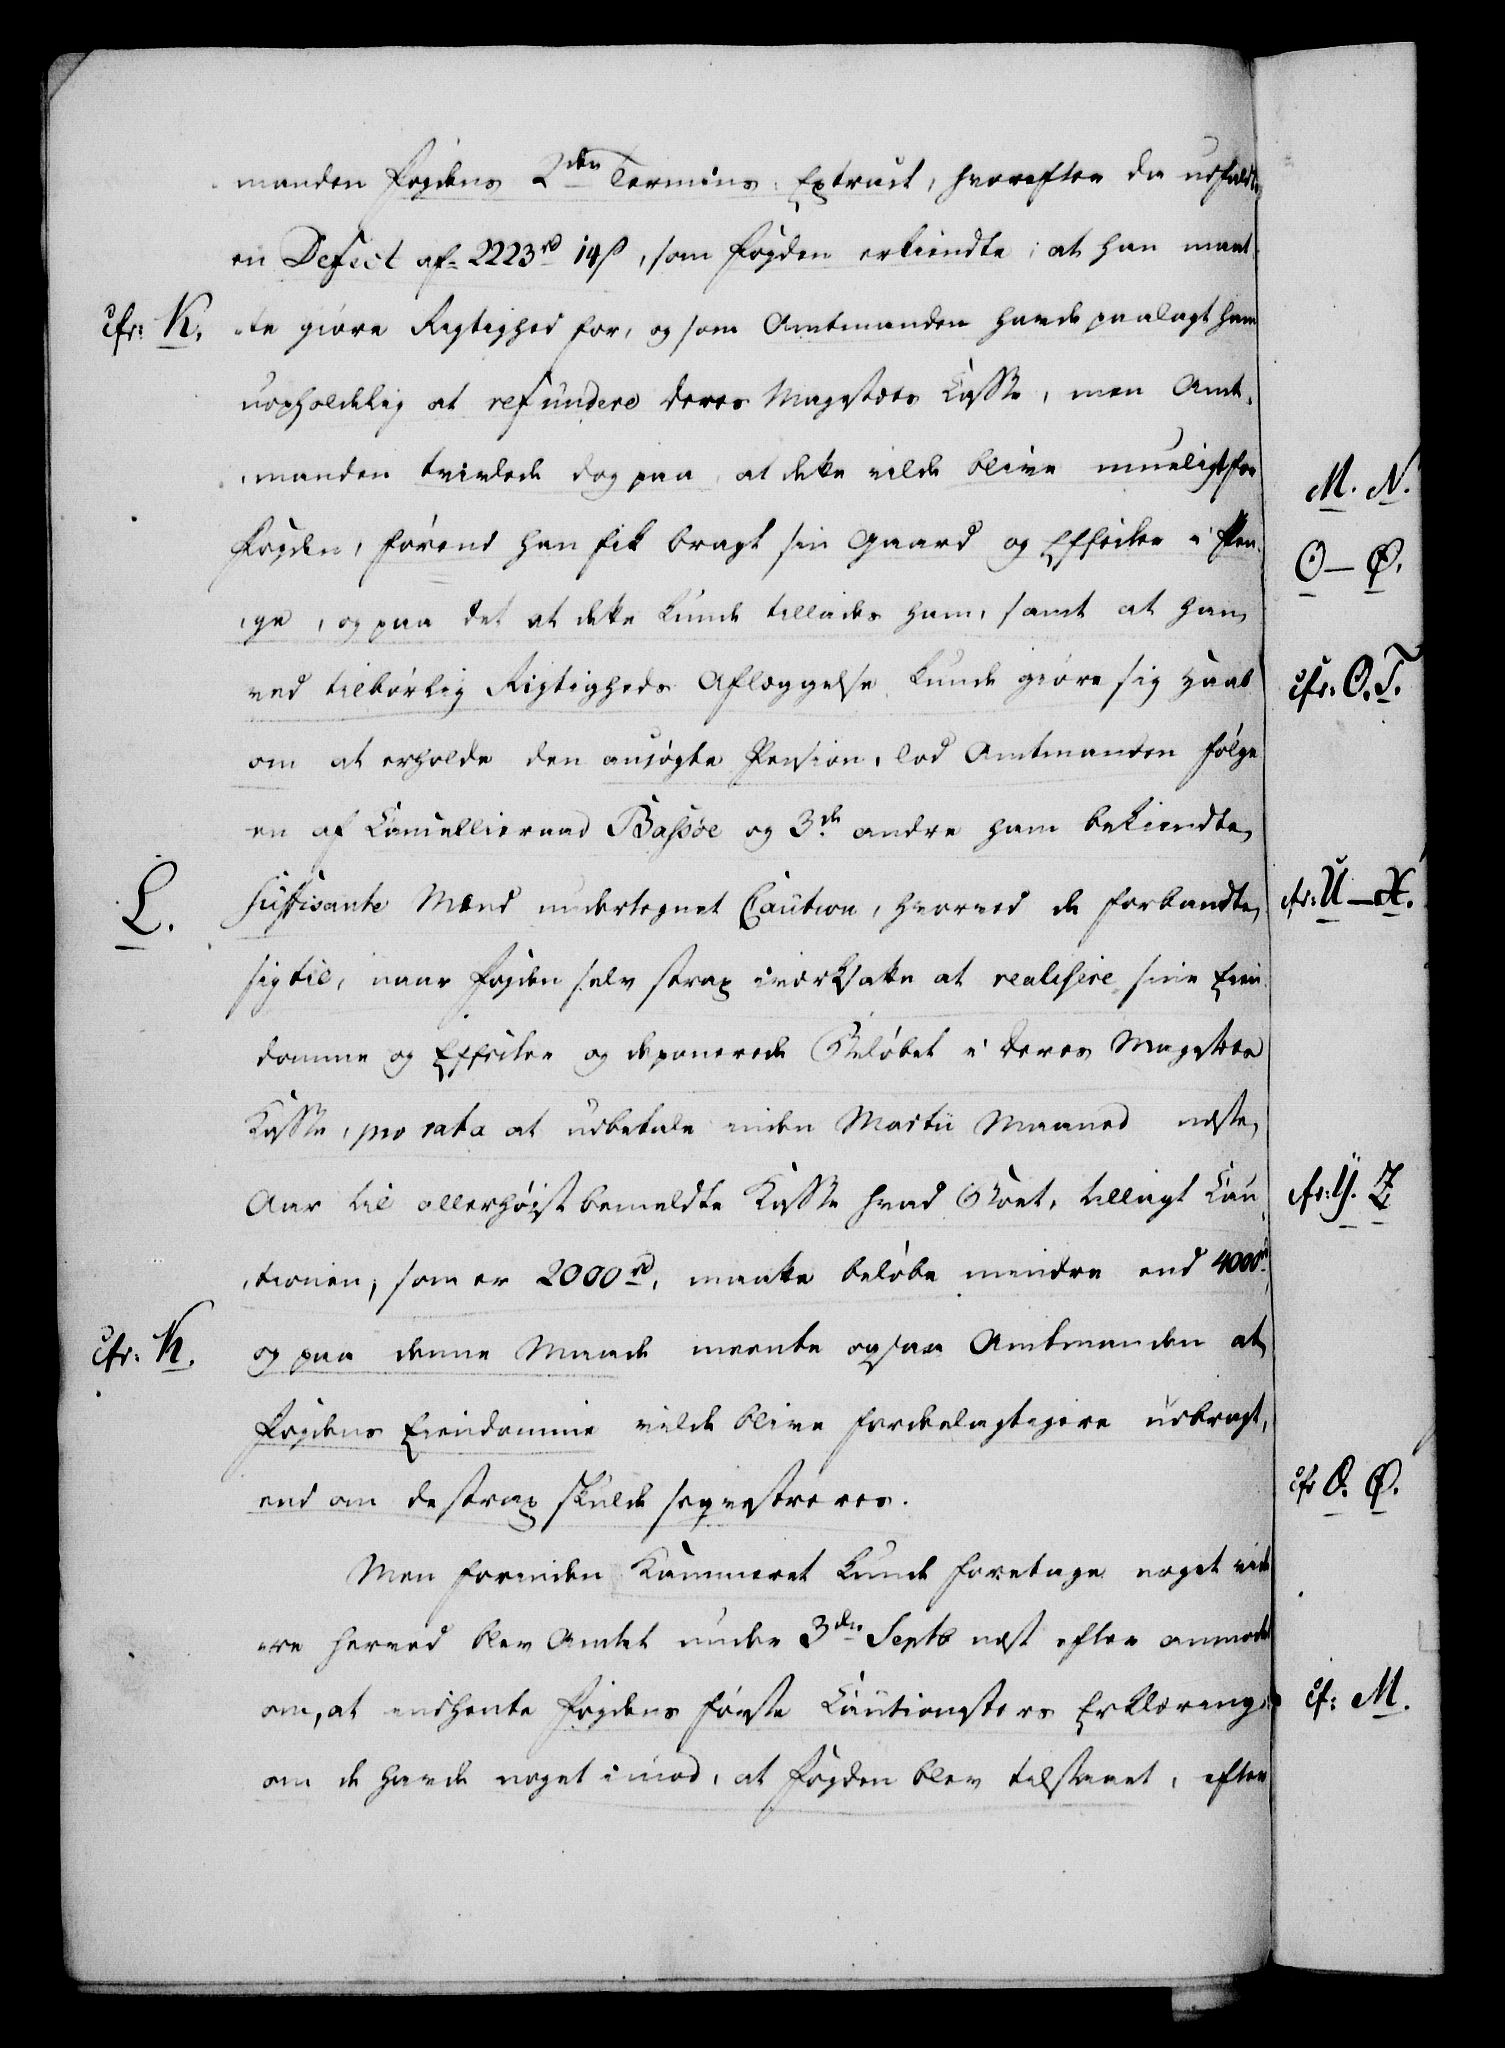 manden Fogdens 2den Termins Extract, hvorefter da udfaldt
en Defect af 2223rd 14ß, som Fogden erkiendte at han maat-
cfr: K. te giøre Rigtighed for, og som Amtmanden havde paalagt ham
uopholdelig at refundere Deres Mayestæts Casse, men Amt-
manden tvivlede dog paa at dette vilde blive mueligt for
Fogden, førend han fik bragt sin Gaard og Effecter i Pen-
ge, og paa det at dette kunde tillades ham, samt at han
ved tilbørlig Rigtigheds Aflæggelse kunde giøre sig Haab
om at erholde den ansøgte Pension, lod Amtmanden følge
en af Cancellieraad Bassøe og 3de andre ham bekiendte
L. suffisante Mænd undertegnet Caution, hvorved de forbandte
sig til, naar Fogden selv strax iværksatte at realisere sine Eien-
domme og Effecter og deponerede Beløbet i Deres Mayestæts
Kasse, pro rata at udbetale inden Martii Maaned næste
Aar til allerhøistbemeldte Kasse hvad Boet, tillagt Cau-
tionen, som er 2000rd, maatte beløbe mindre end 4000rd,
cfr: K. og paa denne Maade meente ogsaa Amtmanden at
Fogdens Eiendomme vilde blive fordeelagtigere udbragt,
end om de strax skulde seqvestreres.
Men forinden Kammeret kunde foretage noget vide-
re herved blev Amtet under 3die Septb næst efter anmodet
om, at indhente Fogdens første Cautionisters Erklæring,
om de havde noget imod, at Fogden blev tilstaaet, efter
M. N.
O — Ø.
cfr: O. T.
cfr: U — X.
cfr: Y. Z
cfr O. Ø.
cf: M.